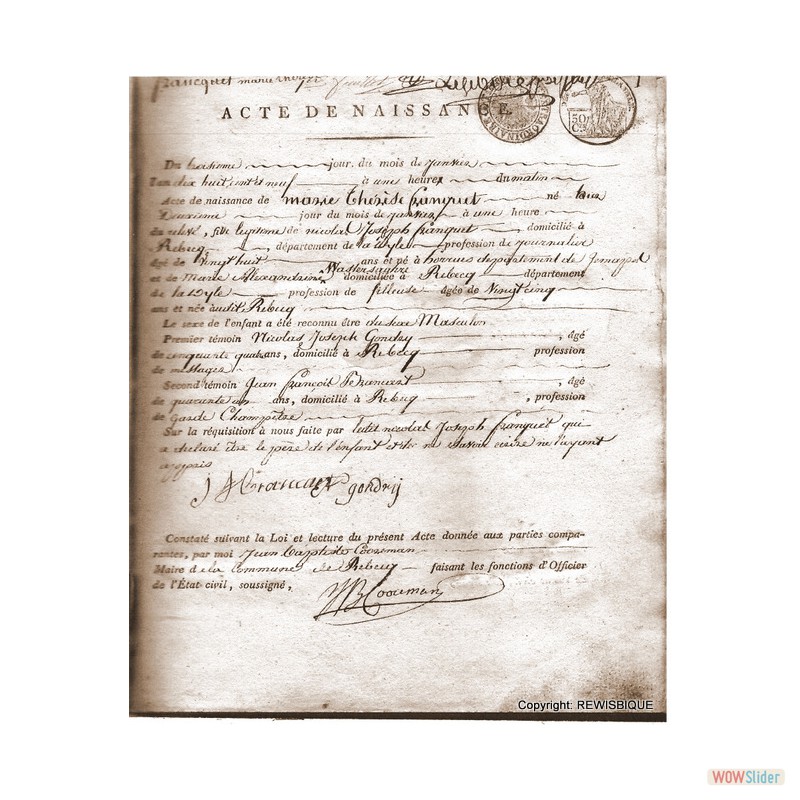 ACTE DE NAISSANCE.
50 Cs
Du troisieme jour du mois de janvier
l'an dix huit cent et neuf à une heures du matin
Acte de naissance de marie Thérèse franquet né hier
Deuxieme jour du mois de janvier à une heure
fille legitime de nicolas Joseph franquet, domicilié à
Rebecq, département de la dyle profession de journalier
âgé de vingt huit ans et né à horrues departement de Jemappe
et de Marie Alexandrine Wastersaghre domiciliée à Rebecq département
de la Dyle profession de fileuse âgée de Vingt cinq
ans et née audit Rebecq
Le sexe de l'enfant a été reconnu être du sexe Masculin
Premier témoin Nicolas Joseph Gondry, âgé
de cinquante quatre ans, domicilié à Rebecq profession
de messager
Second témoin Jean françois, âgé
de quarante un ans, domicilié à Rebecq, profession
de garde Champêtre
Sur la réquisition à nous faite par ledit nicolas Joseph franquet qui
a declaré être le père de l'enfant et de ne savoir ecrire ne l'ayant
appris
gondrij
Constaté suivant la Loi et lecture du présent Acte donnée aux parties compa-
rantes, par moi Jean baptiste Cooreman
Maire de la commune de Rebecq faisant les fonctions d'Officier
de l'État civil, soussigné,
JB Cooreman
Copyright: REWISBIQUE
WOWSlider